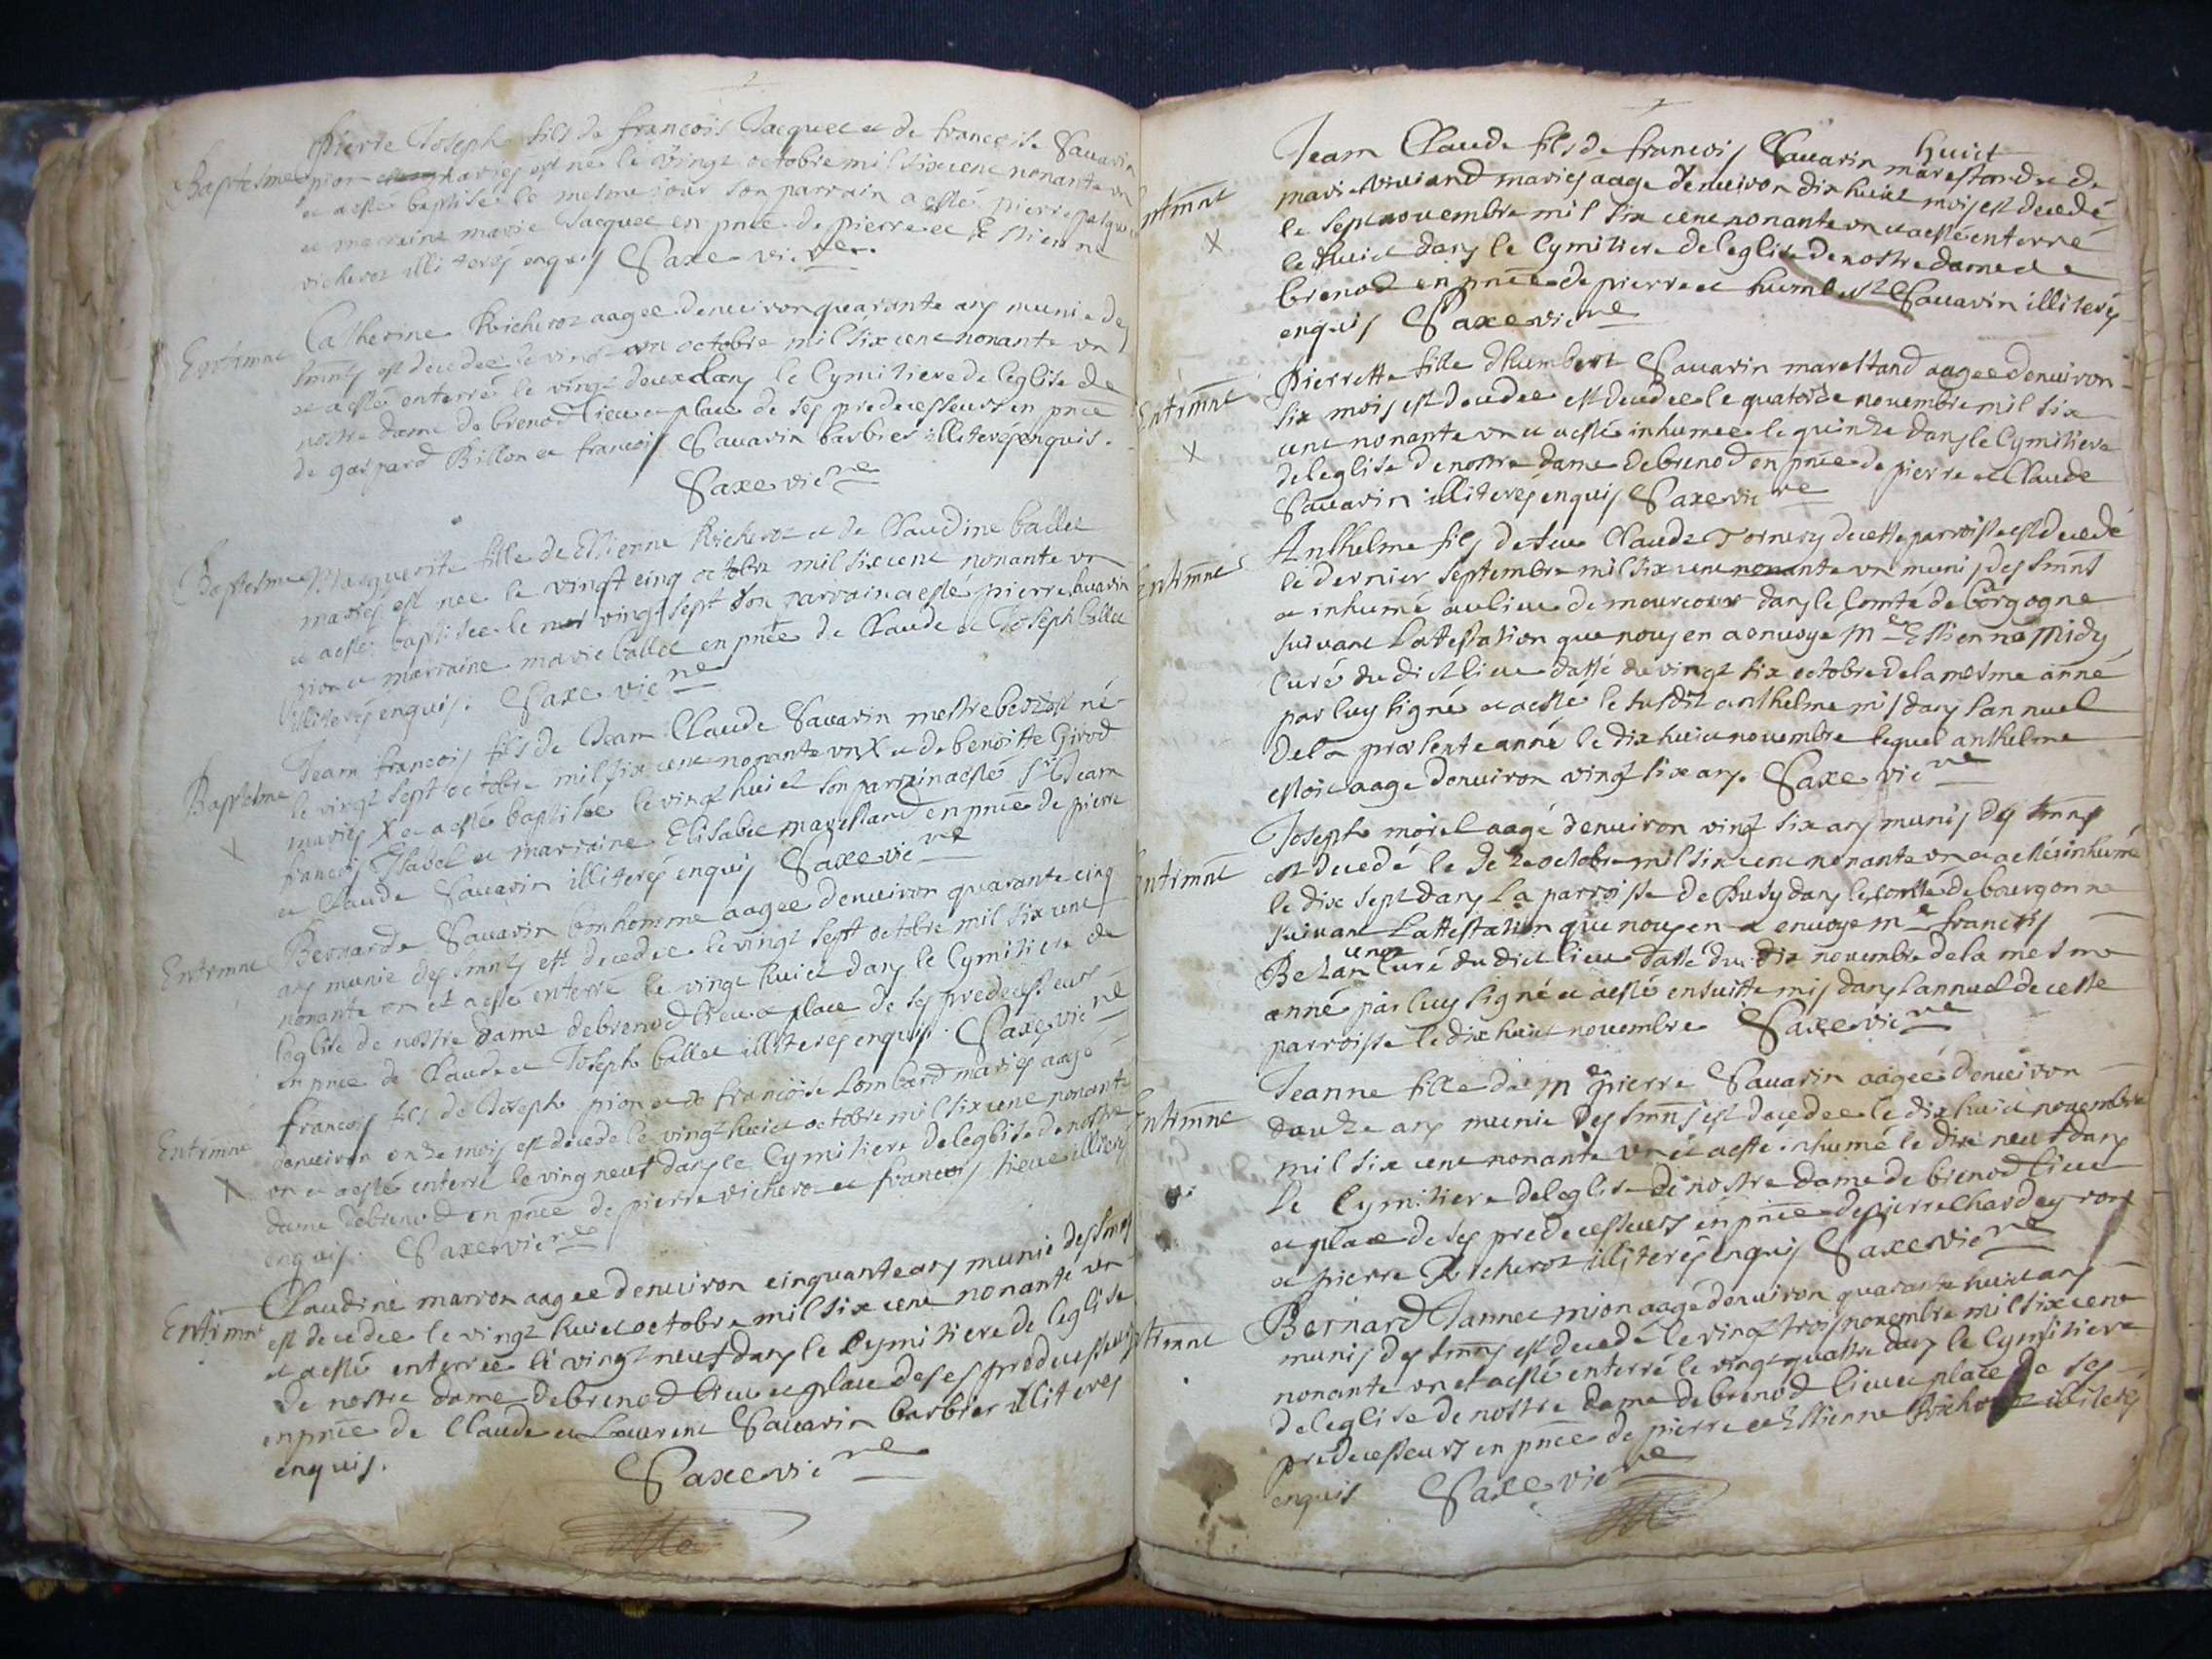 Baptesme Pierre Joseph fils de francois Jacquet et de francoise Sauarin
pion mariés est né le vingt octobre mil six cent nonante un
et a esté baptisé le mesme jour son parrain a esté pierre
et marraine marie Jacquet en pñce de pierre et Estienne
richerot illiterés enquis Saxe vicre
Entrmnt Catherine Richerot aagee denuiron quarante ans munie des
Smnts est decedee le vingt un octobre mil six cent nonante un
et a esté enterré le vingt deux dans le Cymitiere de leglise de
nostre dame de brenod lieu et place de ses predecesseurs en pnce
de gaspard Billon et francois Sauarin barbier illiterés enquis.
Saxe vicre
Baptesme Marguerite fille de Estienne Richerot et de Claudine ballet
mariés est nee le vingt cinq octobre mil six cent nonante un
et a esté baptisee le vingt sept son parrain a esté pierre sauarin
pion et marraine marie ballet en pñce de Claude et Joseph ballet
illiterés enquis. Saxe vicre
Baptesme Jean francois fils de Jean Claude Sauarin mestrebert est né
le vingt sept octobre mil six cent nonante un X et de benoitte Girod
mariés X et a esté baptisée le vingt huict son parrain a esté Sr Jean
francois Isabel et marraine Elisabet marestand en pnce de pierre
X
et Claude Sauarin illiterés enquis Saxe vicre
Entrmnt Bernarde Sauarin bonhomme aagee denuiron quarante cinq
ans munie des Smnts est decedee le vingt sept octobre mil six cent
nonante un et a esté enterré le vingt huict dans le Cymitiere de
leglise de nostre dame de brenod lieu et place de ses predecesseurs
en pnce de Claude et Joseph ballet illiterés enquis. Saxe vicre
Entrmnt francois fils de Joseph pion et de francoise Lombard mariés aagé
denuiron onze mois est decede le vingt huict octobre mil six cent nonante
X
un et a esté enterré le vingt neuf dans le Cymitiere de leglise de nostre
dame de brenod en pnce de pierre richerot et francois illiterés
enquis. Saxe vicre
Entrmnt Claudine marron aagee denuiron cinquante ans munie des Smnts
est decedee le vingt huict octobre mil six cent nonante un
et a esté enterree le vingt neuf dans le Cymitiere de leglise
de nostre dame de brenod lieu et place de ses predecesseurs
en pnce de Claude et Laurent Sauarin barbier illiterés
enquis.
Saxe vicre
huict
Entrmnt Jean Claude fils de francois Sauarin marestand et de
X
marie Viuiand mariés aagé denuiron dix huict mois est decedé
le sept nouembre mil six cent nonante un et a esté enterré
le huict dans le Cymitiere de leglise de nostre dame de
brenod en pnce de pierre et humbert Sauarin illiterés
enquis Saxe vicre
Entrmnt Pierrette fille dhumbert Sauarin marestand aagee denuiron
six mois est decedee est decedee le quatorze nouembre mil six
X
cent nonante un et a esté inhumee le quinze dans le Cymitiere
de leglise de nostre dame de brenod en pnce de pierre et Claude
Sauarin illiterés enquis Saxe vicre
Entrmnt Anthelme fils de feu Claude Tornery de cette parroisse est decedé
le dernier septembre mil six cent nonante un munis des Smnts
et inhumé au lieu de mourcour dans le Comté de borgogne
suiuant Lattestation que nous en a enuoyé Me Estienne Midy
Curé du dict lieu datté du vingt six octobre de la mesme anné
par luy signé et a esté le susdit anthelme mis dans lannuel
de la presente anné le dix huict nouembre lequel anthelme
estoit aagé denuiron vingt six ans. Saxe vicre
Entrmnt Joseph morel aagé denuiron vingt six ans munis des Smnts
est decedé le de octobre mil six cent nonante un et a esté inhumé
le dix sept dans La parroisse de Pusy dans le comté de bourgonne
suiuant Lattestation que nous en a enuoyé Me francois
Curé du dict lieu datté du dix nouembre de la mesme
anné par luy signé et a esté ensuitte mis dans lannuel de cette
parroisse le dix huict nouembre Saxe vicre
Entrmnt Jeanne fille de Me pierre Sauarin aagée denuiron
douze ans munie des Smnts est decedee le dix huict nouembre
mil six cent nonante un et a esté inhumé le dix neuf dans
le Cymitiere de leglise de nostre dame de brenod lieu
et place de ses predecesseurs en pnce de pierre Chardeyron
et pierre Richerot illiterés enquis Saxe vicre
Entrmnt Bernard Jannet mion aagé denuiron quarante huict ans
munis des Smnts est decedé le vingt trois nouembre mil six cent
nonante un et a esté enterré le vingt quattre dans le Cymitiere
de leglise de nostre dame de brenod lieu et place de ses
predecesseurs en pnce de pierre et Estienne Richerot illiterés
enquis Saxe vicre